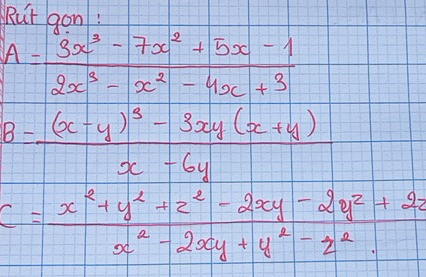 Rút gọn :
A = 3x³ - 7x² + 5x - 1
2x³ - x² - 4x + 3
B = (x - y)³ - 3xy (x + y)
x - 6y
C = x² + y² + z² - 2xy - 2yz + 2z
x² - 2xy + y² - z² .